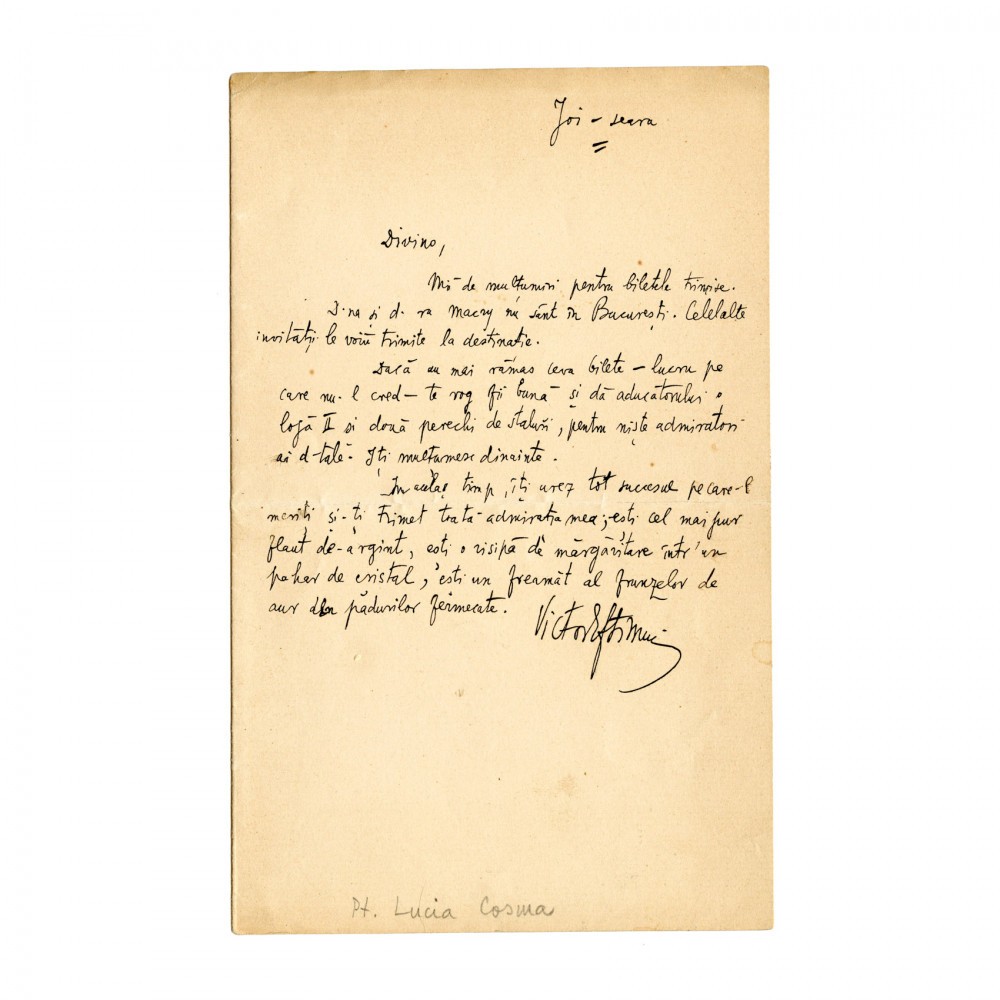 Joi - seara
Divino,
Mii de mulțumiri pentru biletele trimise.
D-na și d-ra Macry nu sunt în București. Celelalte
invitații le voiu trimite la destinație.
Dacă au mai rămas ceva bilete - lucru pe
care nu-l cred - te rog fii bună și dă aducătorului o
lojă II și două perechi de staluri, pentru niște admiratori
ai d-tale. Iți mulțumesc dinainte.
In acelaș timp, îți urez tot succesul pe care-l
meriți și-ți trimet toată admirația mea; ești cel mai pur
flaut de-argint, ești o risipă de mărgăritare într'un
pahar de cristal, ești un freamăt al frunzelor de
aur pădurilor fermecate.
Victor Eftimiu
Pt. Lucia Cosma